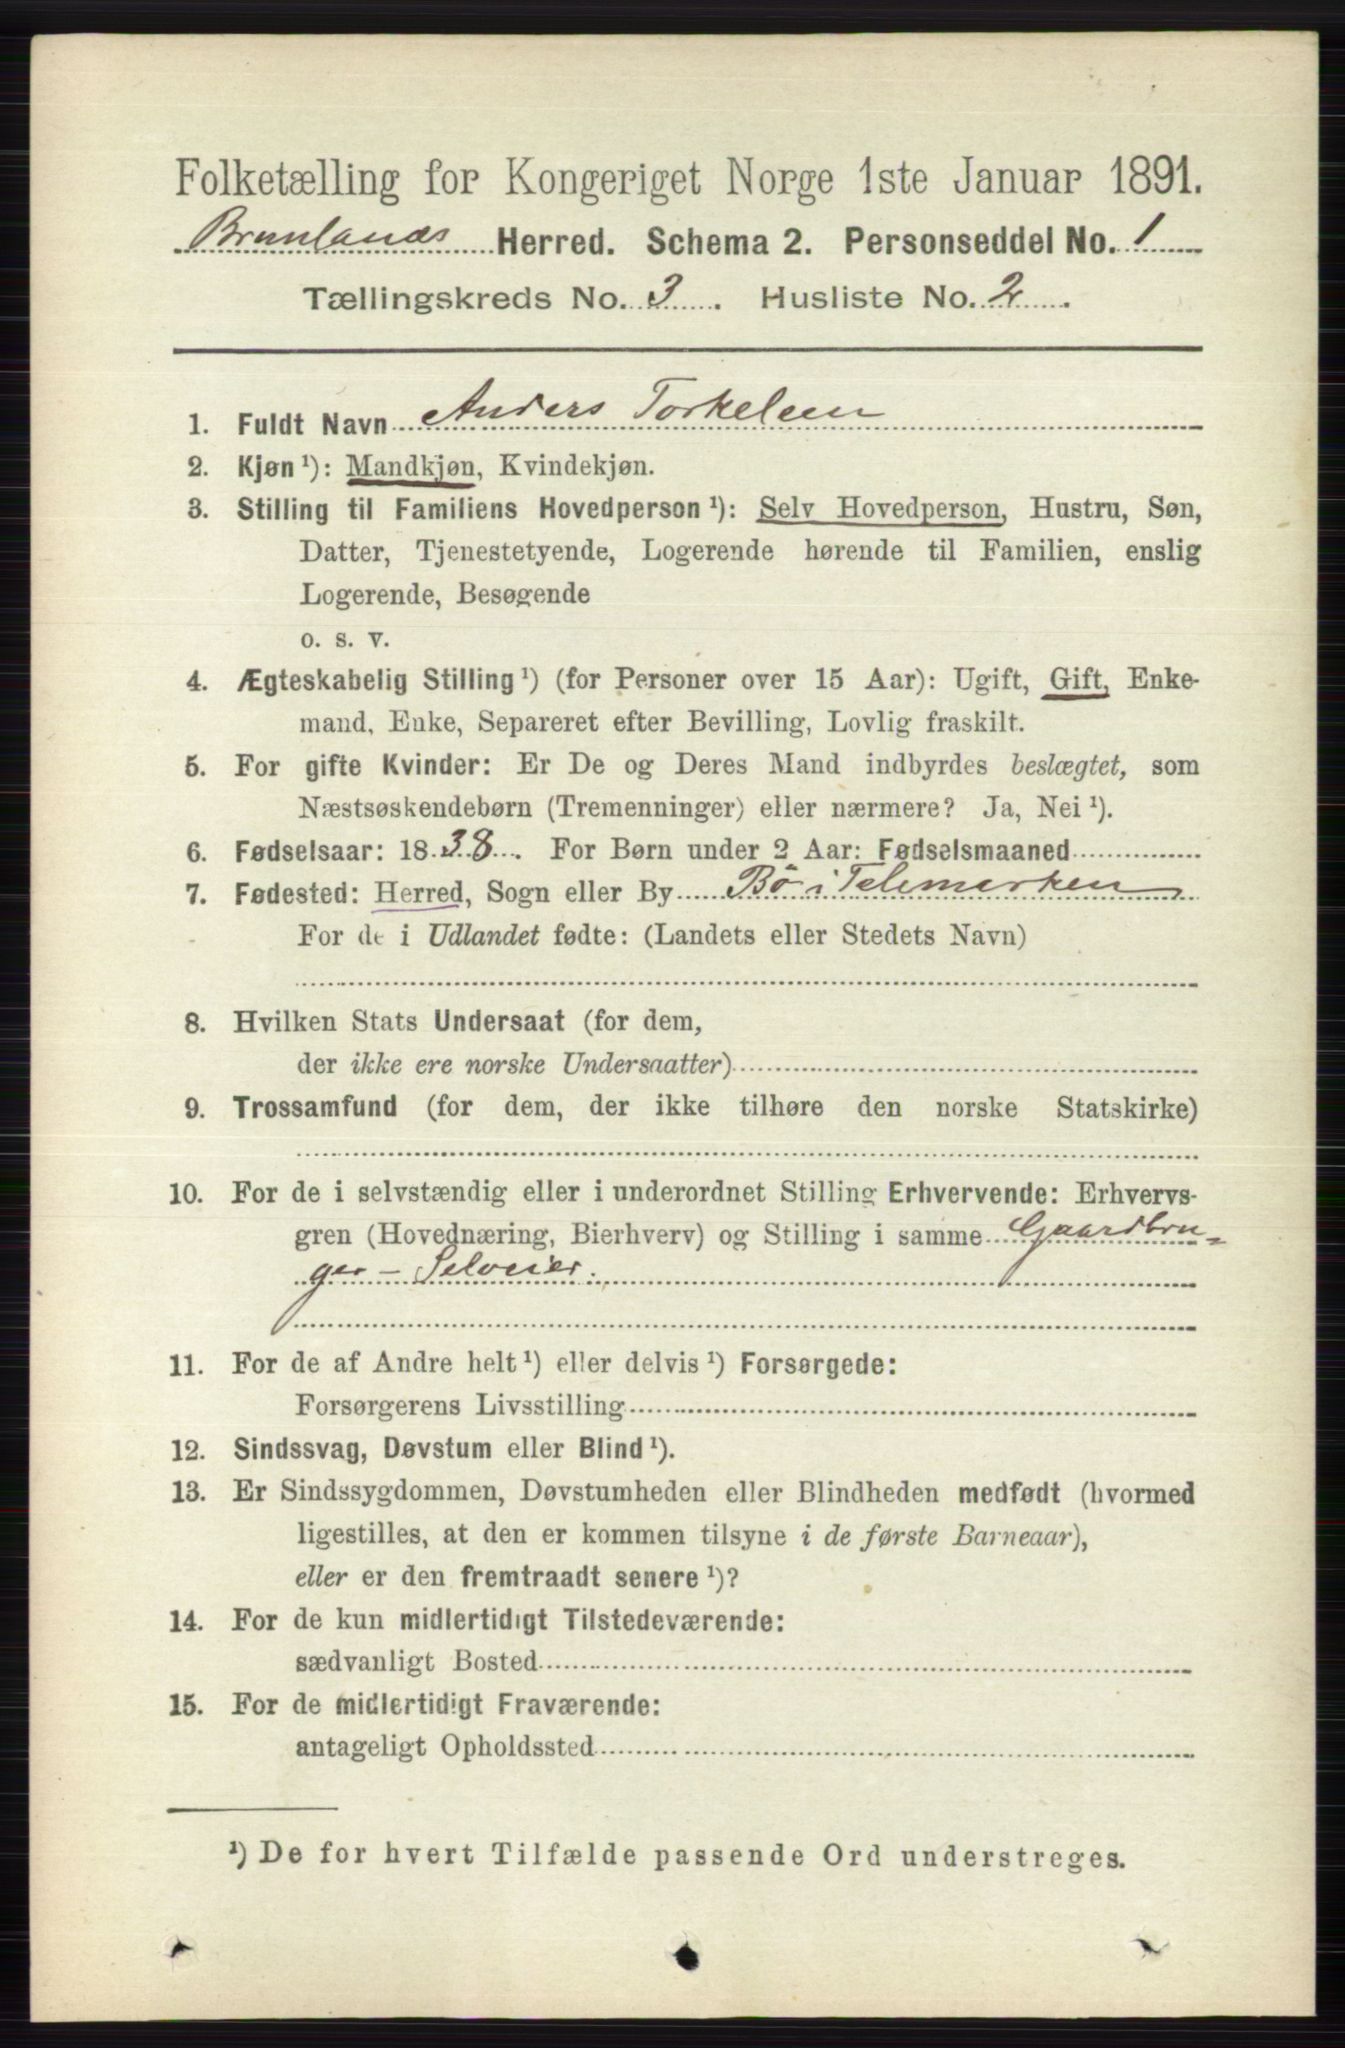 Folketælling for Kongeriget Norge 1ste Januar 1891.
Brunlanæs Herred. Schema 2. Personseddel No. 1
Tællingskreds No. 3. Husliste No. 2.
1. Fuldt Navn Anders Torkelsen
2. Kjøn ¹): Mandkjøn, Kvindekjøn.
3. Stilling til Familiens Hovedperson ¹): Selv Hovedperson, Hustru, Søn,
Datter, Tjenestetyende, Logerende hørende til Familien, enslig
Logerende, Besøgende
o. s. v.
4. Ægteskabelig Stilling ¹) (for Personer over 15 Aar): Ugift, Gift, Enke-
mand, Enke, Separeret efter Bevilling, Lovlig fraskilt.
5. For gifte Kvinder: Er De og Deres Mand indbyrdes beslægtet, som
Næstsøskendebørn (Tremenninger) eller nærmere? Ja, Nei ¹).
6. Fødselsaar: 1838. For Børn under 2 Aar: Fødselsmaaned
7. Fødested: Herred, Sogn eller By Bø i Telemarken
For de i Udlandet fødte: (Landets eller Stedets Navn)
8. Hvilken Stats Undersaat (for dem,
der ikke ere norske Undersaatter)
9. Trossamfund (for dem, der ikke tilhøre den norske Statskirke)
10. For de i selvstændig eller i underordnet Stilling Erhvervende: Erhvervs-
gren (Hovednæring, Bierhverv) og Stilling i samme Gaardbru-
ger - Selveier.
11. For de af Andre helt ¹) eller delvis ¹) Forsørgede:
Forsørgerens Livsstilling
12. Sindssvag, Døvstum eller Blind ¹).
13. Er Sindssygdommen, Døvstumheden eller Blindheden medfødt (hvormed
ligestilles, at den er kommen tilsyne i de første Barneaar),
eller er den fremtraadt senere ¹)?
14. For de kun midlertidigt Tilstedeværende:
sædvanligt Bosted
15. For de midlertidigt Fraværende:
antageligt Opholdssted
¹) De for hvert Tilfælde passende Ord understreges.